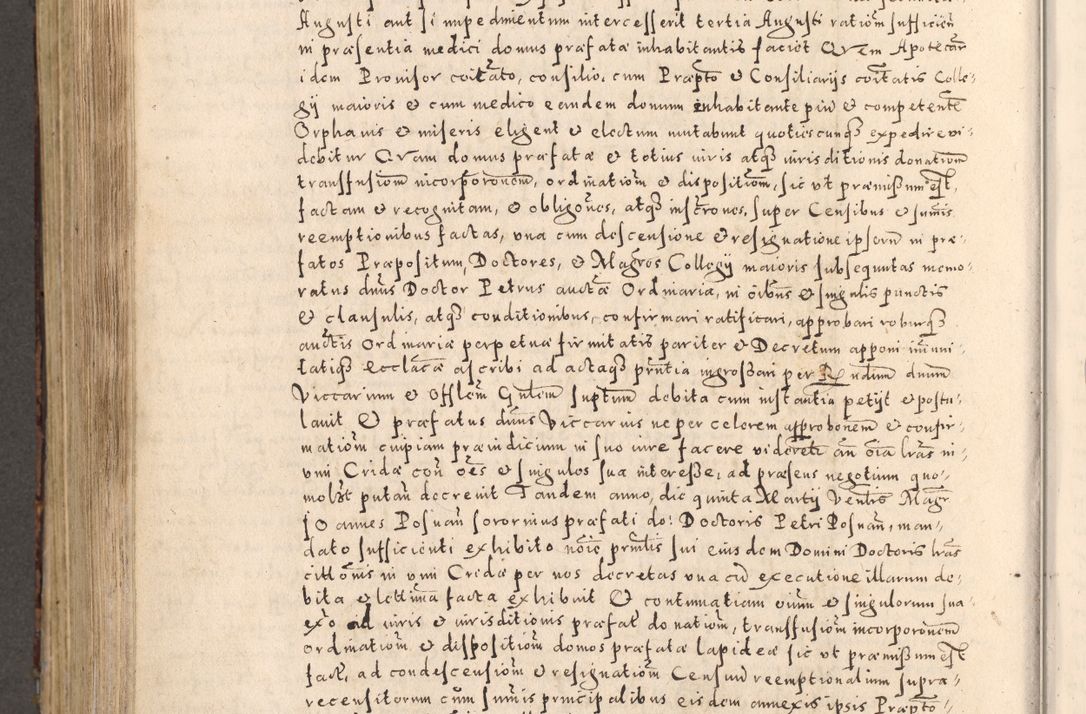 Augusti aut si impedimentum intercesserit tertia Augusti rationem sufficien
in præsentia medici domus præfatæ inhabitantis faciet Quem Apotecar
idem Provisor coĩtato, consilio, cum Præpto & Consiliarijs coĩtatis Colle-
gij maioris & cum medico eandem domum inhabitante piu & competente
Orphanis & miseris eligent & electum mutabunt quotiescunqꝫ expedire vi-
debitur Quam domus præfatæ & totius iuris atqꝫ iurisditionis donationem
transfusionem incorporonem, ordinationem & dispositionem, sic ut præmissum est,
factam & recognitam, & obligones, atqꝫ inscrones, super Censibus & sumis
reemptionibus factas, una cum descensione & resignatione ipsorum in præ-
fatos Præpositum, Doctores, & Magros Collegij maioris subsequutas memo-
ratus dnus Doctor Petrus auctã Ordinaria, in oĩbus & singulis punctis
& clausulis, atqꝫ conditionibus, confirmari ratificari, approbari roburqꝫ
auctis Ordinariæ perpetuæ firmitatis pariter & Decretum apponi immuni-
tatiqꝫ ecclãcæ ascribi ad actaqꝫ prñtia ingrossari per R ndum dnum
Viccarium & Offlem Gnlem suptum debita cum instantia petijt & postu-
lavit Et præfatus dnus Viccarius ne per celerem approbonem & confir-
mationem cuipiam præiudicium in suo iure facere videretr an oĩa lras in-
vim Cridæ con oẽs & singulos sua interesse, ad præsens negotium quo-
molꝫt putan decrevit Tandem anno, die quinta Martij Veneris Magr
Joannes Posnan sororinus præfati do: Doctoris Petri Posnan, man-
dato sufficienti exhibito noĩe prinlis sui eiusdem Domini Doctoris lras
citt onis in vim Cridæ per nos decretas una cũ executione illarum de-
bita & lettima facta exhibuit Et contumatiam oium & singulorum sua
exro ad iuris & iurisditionis præfat donationem, transfusionem incorporonem
ordinationem & dispositionem domos præfatæ lapideæ sic ut præmissum est
fact, ad condescensionem & resignationem Censuũ reemptionalium supra-
recensitorum cum sumis principalibus eisdem annexis ipsis Præpto-